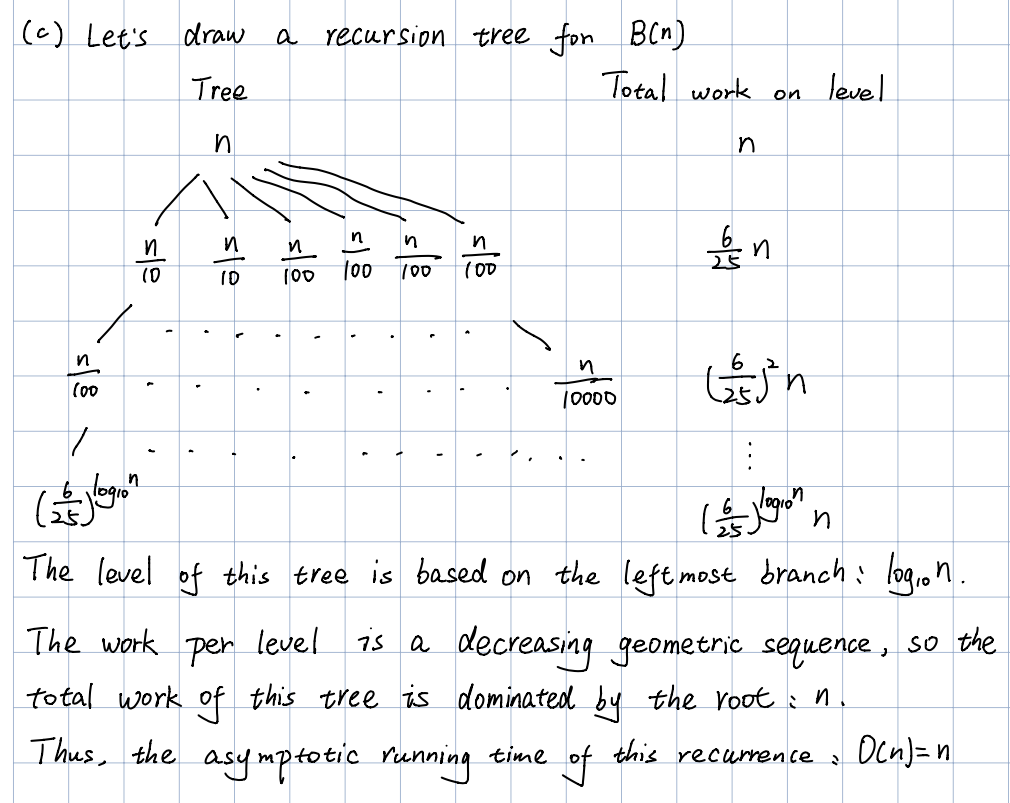 (c) Let's draw a recursion tree for B(n)
Tree Total work on level
n n
n/10 n/10 n/100 n/100 n/100 n/100 6/25 n
. . . . . . . . . .
n/100 . . . . . . . . n/10000 (6/25)² n
. . . . . . . . . . . . ⋮
(6/25)^log₁₀n (6/25)^log₁₀n n
The level of this tree is based on the leftmost branch: log₁₀n.
The work per level is a decreasing geometric sequence, so the
total work of this tree is dominated by the root: n.
Thus, the asymptotic running time of this recurrence: O(n)=n